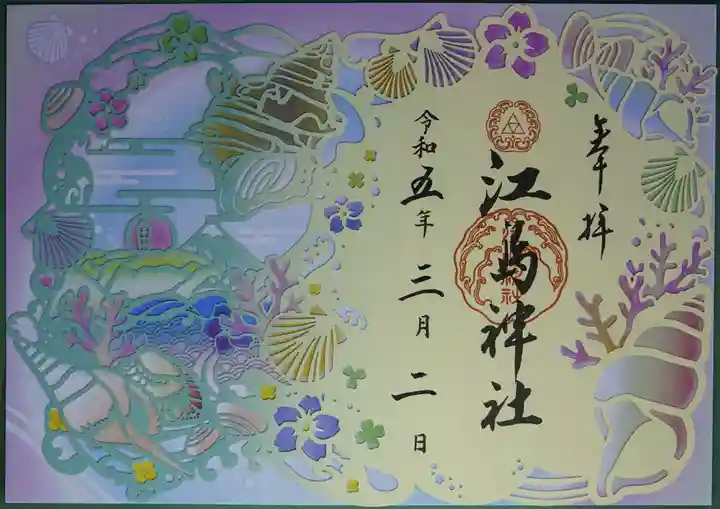 奉拝
江島神社
令和五年三月二日